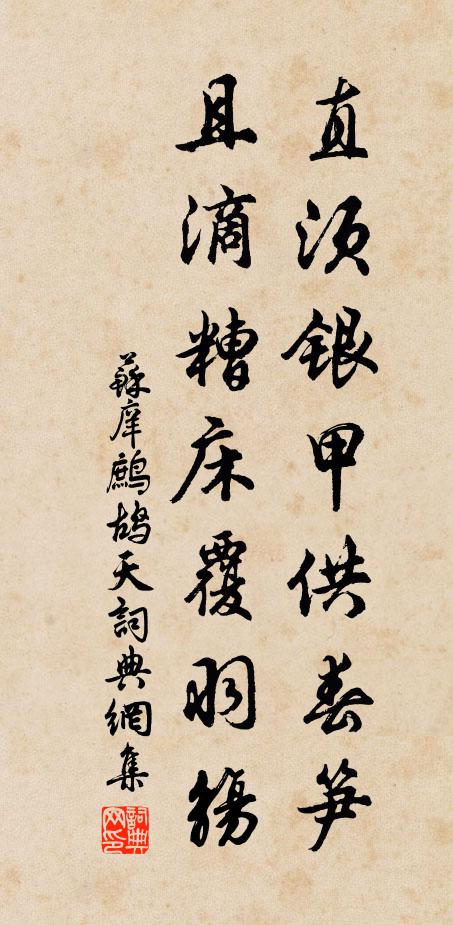 直須銀甲供春笋
且滴糟床覆羽觴
蘇庠鷓鴣天詞典網集
詞典网印